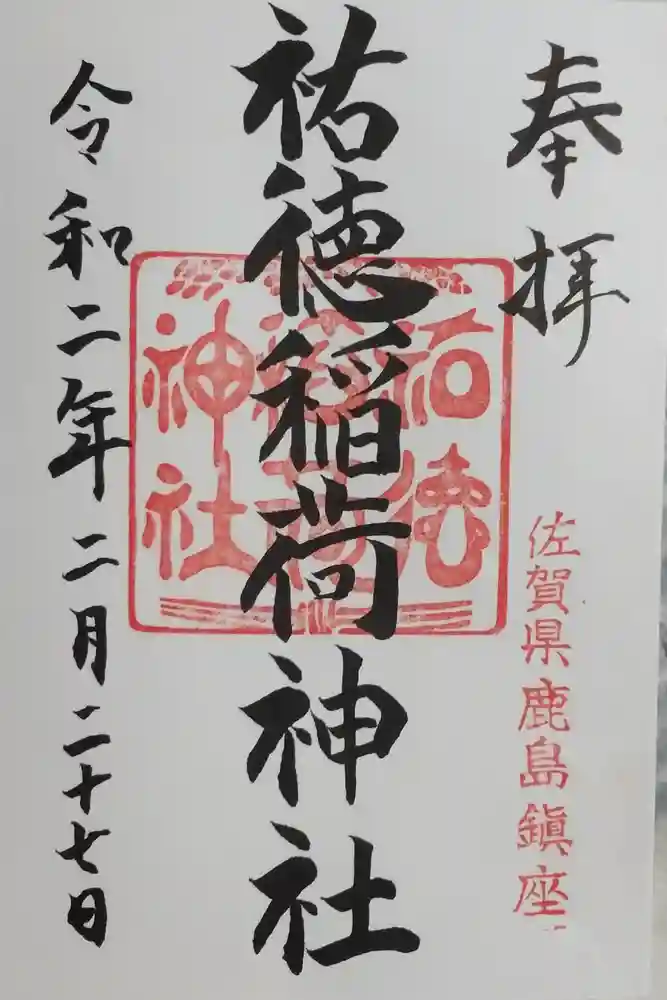 奉拝
佐賀県鹿島鎮座
祐徳稲荷神社
祐徳
稲荷
神社
令和二年二月二十七日